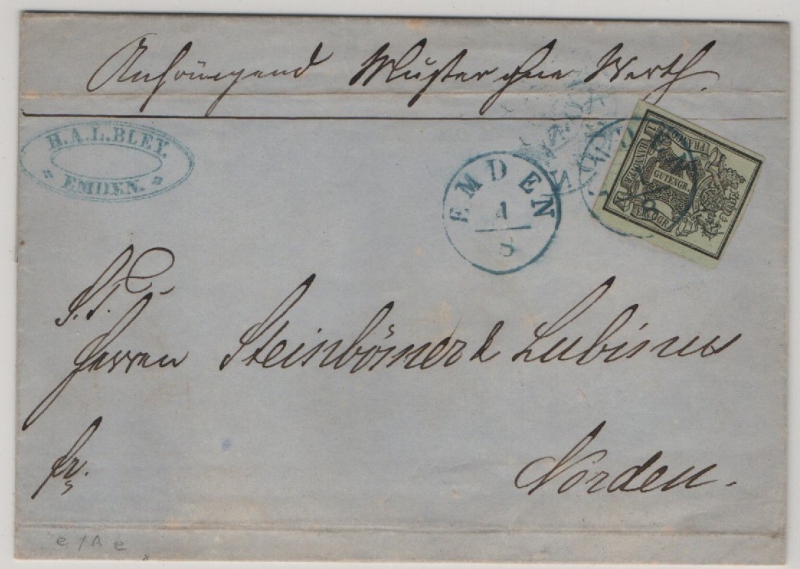 Anhängend Muster ohne Werth.
H.A.L. BLEY.
" EMDEN. "
EMDEN
1
8
HANNOVER
GUTENGR.
S. T.
Herren Steinbömer & Lubinus
fr.
Norden.
e/A e